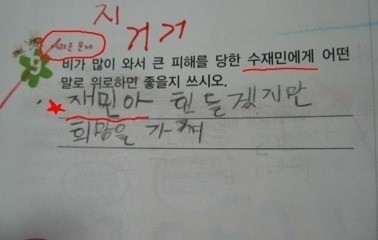 지 거 거
비가 많이 와서 큰 피해를 당한 수재민에게 어떤
말로 위로하면 좋을지 쓰시오.
재민아 힘들겠지만
희망을 가져